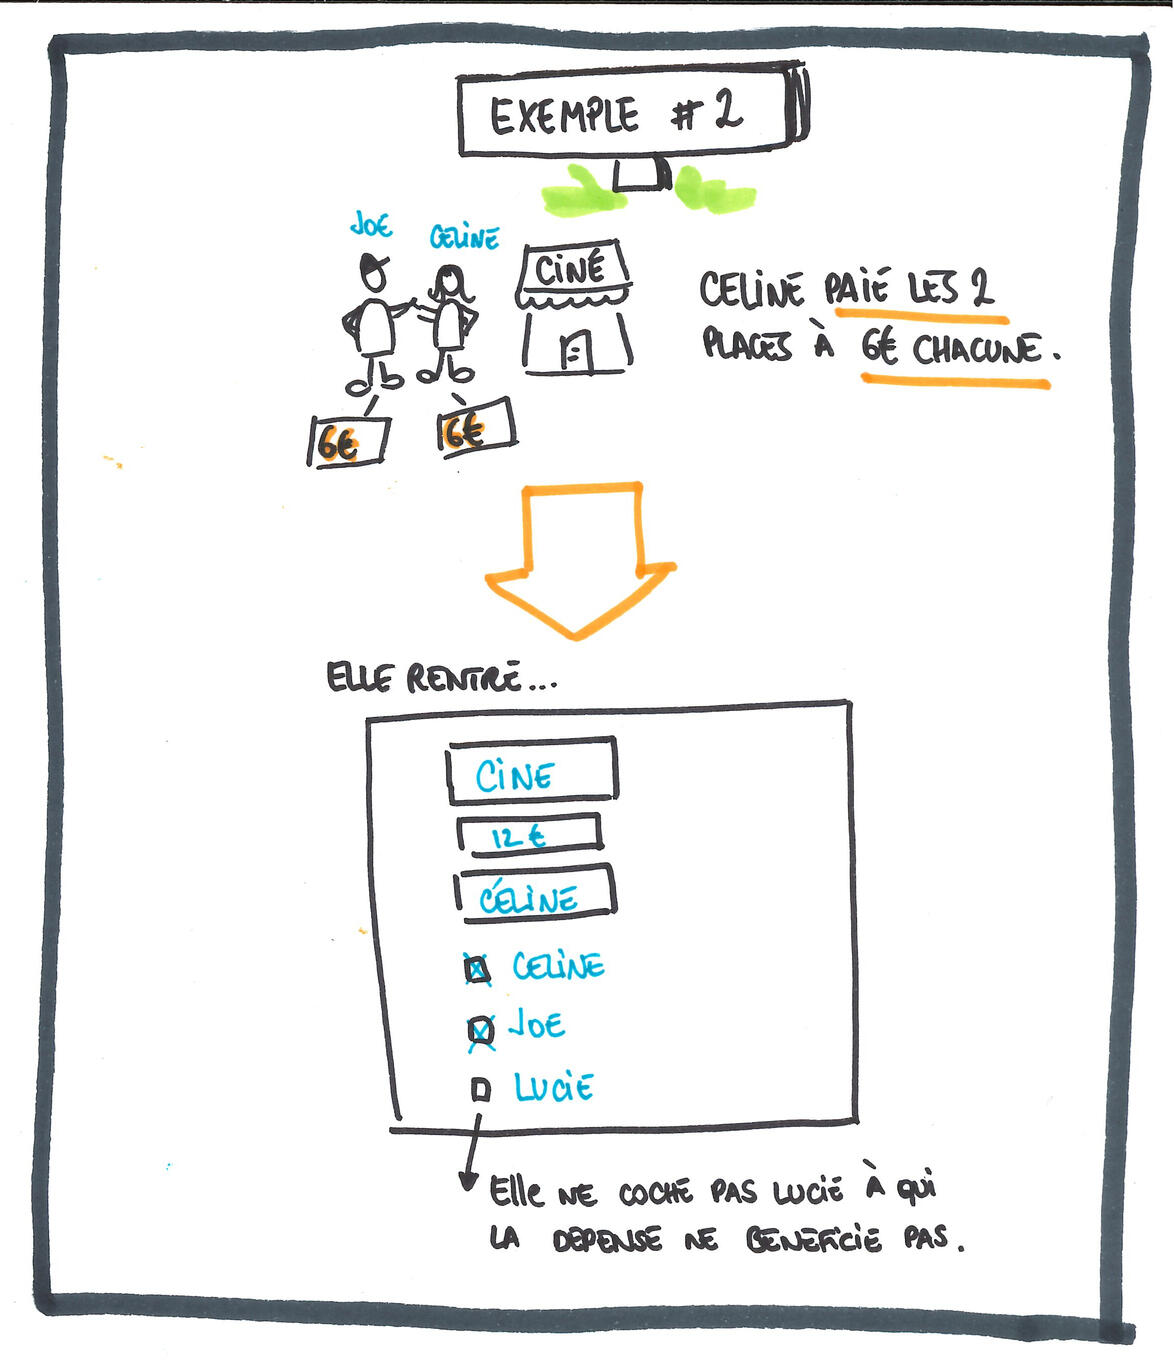 EXEMPLE # 2
JOE
CELINE
CINÉ
CELINE PAIE LES 2
PLACES À 6€ CHACUNE.
6€
6€
ELLE RENTRE...
CINE
12 €
CÉLINE
CELINE
JOE
LUCIE
Elle NE COCHE PAS LUCIE À QUI
LA DEPENSE NE BENEFICIE PAS.